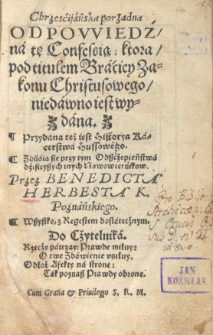 Chrześcijáńska porządna
ODPOWIEDŹ/
ná tę Confessią: ktora/
pod titulem Bráciey Zá-
konu Christusowego/
niedawno iest wy-
dána.
¶ Przydána też iest Historya Ká-
cerstwá Hussowego.
¶ Zbiiáią się przy tym Odszczepieństwá
dzisieyszych inych Nowowiernikow.
Przez BENEDICTA
HERBESTA K.
Poznáńskiego.
¶ Wszystko, z Regestem dostátecznym.
Do Czytelniká.
Rzeczy pátrzay: Prawdę miłuy:
O twe Zbáwienie
Odłoż Afekty ná stronę:
Ták poznasz Prawdy obronę.
Cum Gratia & Privilego S. R. M.
JAN
KOŹMIAN